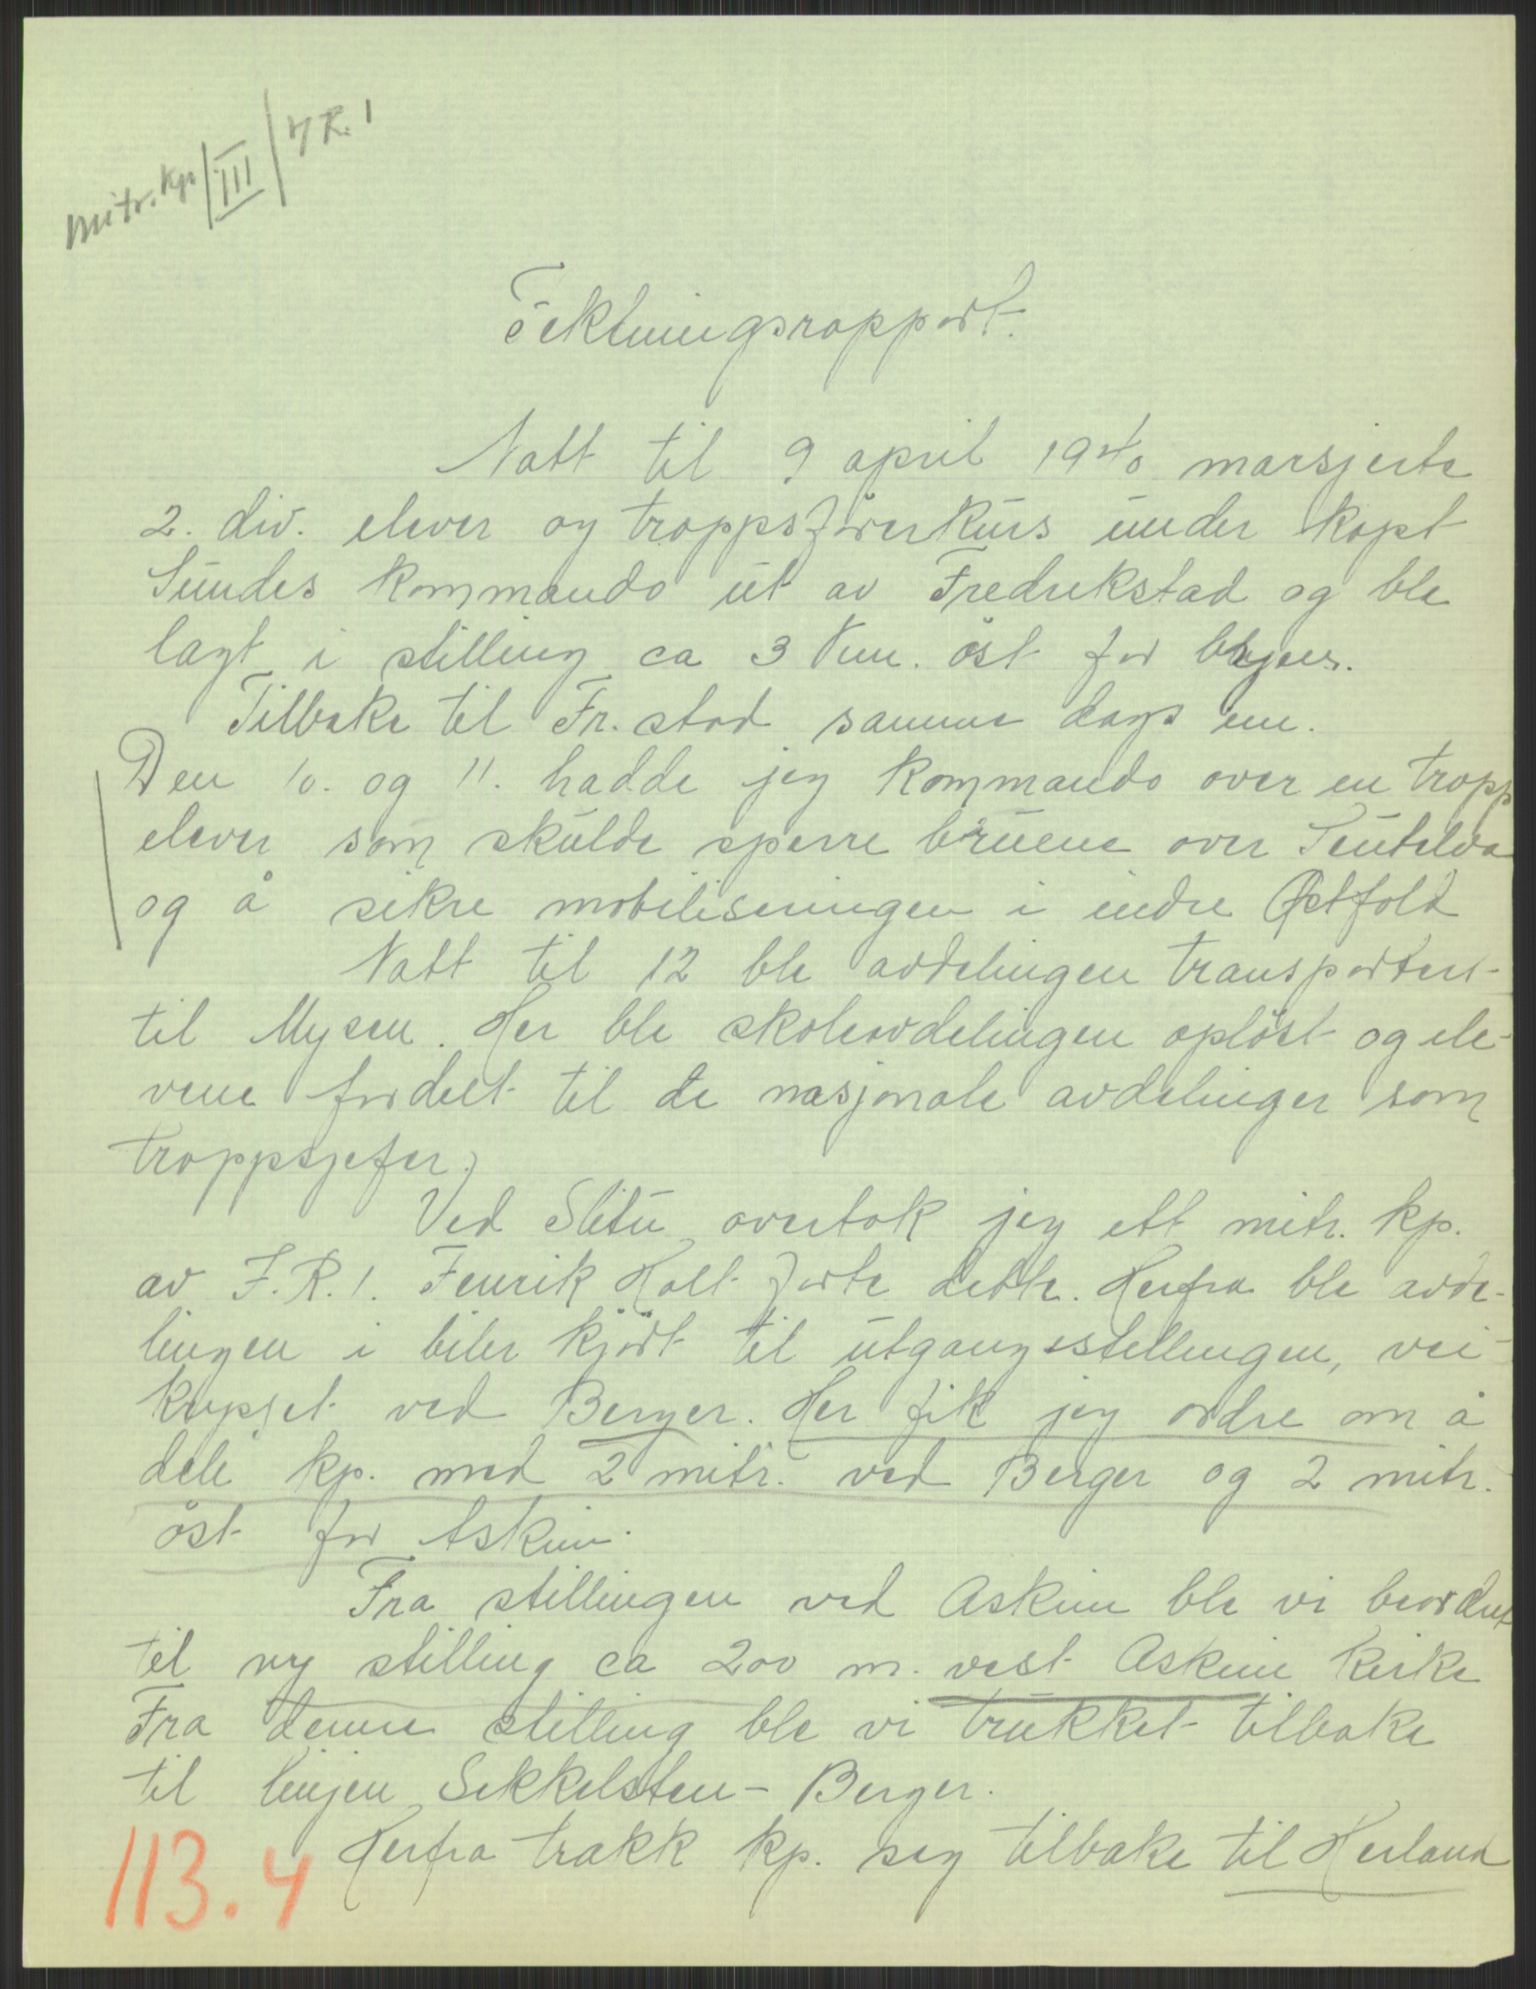 Mitr. kp / III / I R. 1
Fektningsrapport.
Natt til 9 april 1940 marsjerte
2. div. elever og troppsförerkurs under kapt
Sundes kommando ut av Fredrikstad og ble
lagt i stilling ca 3 km. öst for byen.
Tilbake til Fr.stad samme dags em.
Den 10. og 11. hadde jeg kommando over en tropp
elever som skulde sperre bruene over
og å sikre mobiliseringen i indre Østfold
Natt til 12 ble avdelingen transportert
til Mysen. Her ble skoleavdelingen oplöst og ele-
vene fordelt til de nasjonale avdelinger som
troppsjefer.
Ved Slitu overtok jeg ett mitr. kp.
av I.R.1. Fenrik Holt förte dette. Herfra ble avde-
lingen i biler kjört til utgangsstillingen, vei-
krysset ved Berger. Her fik jeg ordre om å
dele kp. med 2 mitr. ved Berger og 2 mitr.
öst for Askim.
Fra stillingen ved Askim ble vi beordret
til ny stilling ca 200 m. vest Askim kirke
Fra denne stilling ble vi trukket tilbake
til linjen Sekkelsten - Berger.
Herfra trakk kp. seg tilbake til Herland
113.4